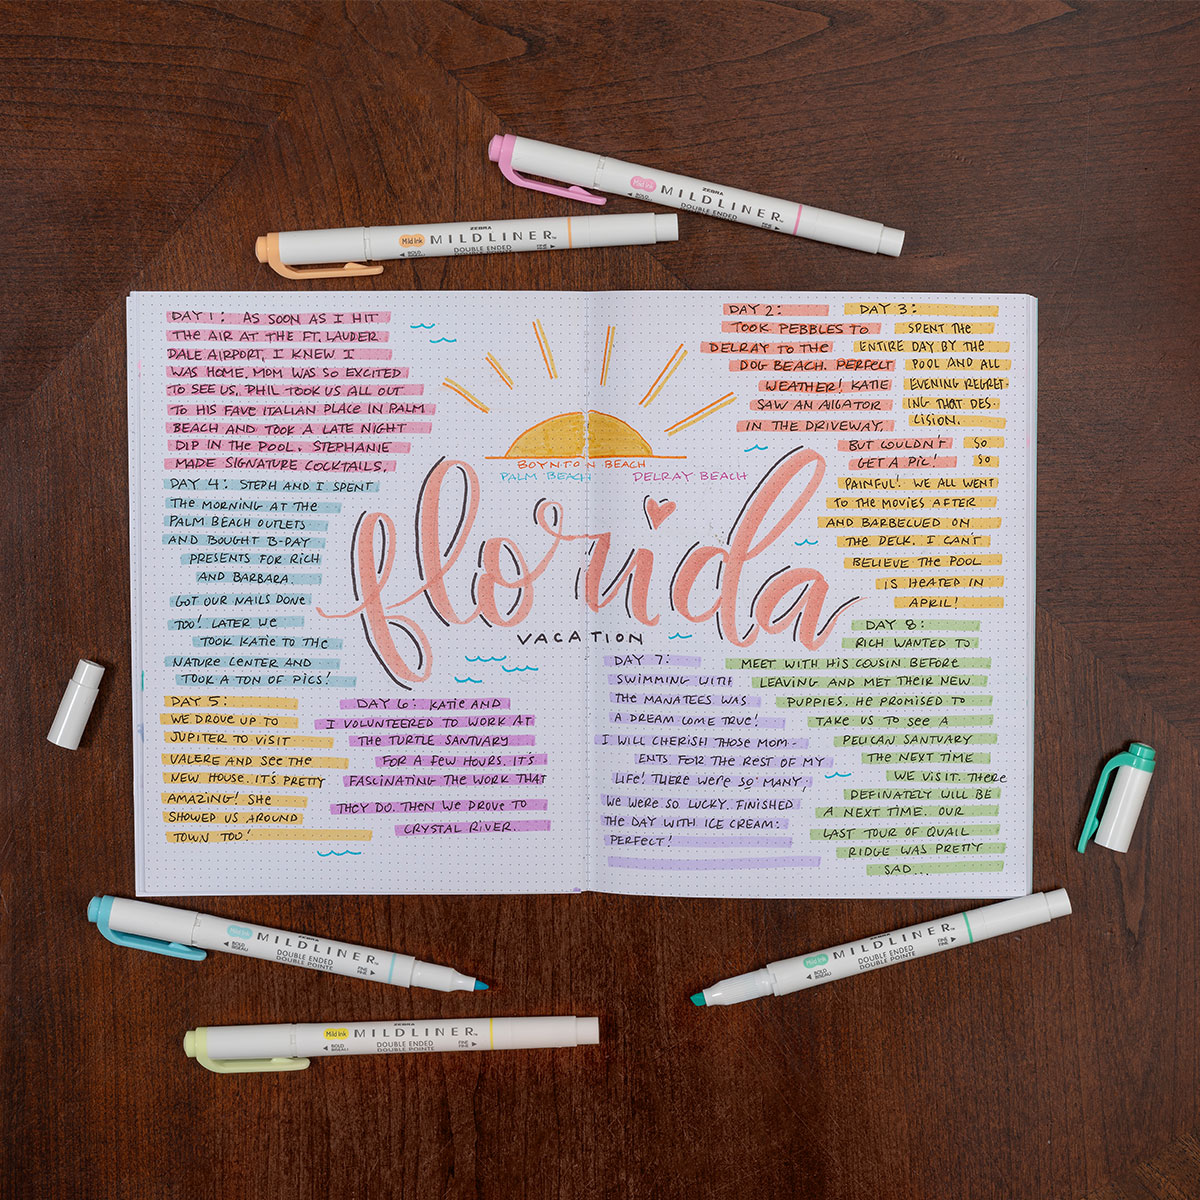 ZEBRA
Mild Ink MILDLINER™
◀ BOLD DOUBLE ENDED FINE ▶
ZEBRA
Mild Ink MILDLINER™
◀ BOLD BISEAU DOUBLE ENDED FINE ▶
DAY 1: AS SOON AS I HIT
THE AIR AT THE FT. LAUDER
DALE AIRPORT, I KNEW I
WAS HOME. MOM WAS SO EXCITED
TO SEE US. PHIL TOOK US ALL OUT
TO HIS FAVE ITALIAN PLACE IN PALM
BEACH AND TOOK A LATE NIGHT
DIP IN THE POOL. STEPHANIE
MADE SIGNATURE COCKTAILS.
DAY 4: STEPH AND I SPENT
THE MORNING AT THE
PALM BEACH OUTLETS
AND BOUGHT B-DAY
PRESENTS FOR RICH
AND BARBARA.
GOT OUR NAILS DONE
TOO! LATER WE
TOOK KATIE TO THE
NATURE CENTER AND
TOOK A TON OF PICS!
DAY 5:
WE DROVE UP TO
JUPITER TO VISIT
VALERE AND SEE THE
NEW HOUSE. IT'S PRETTY
AMAZING! SHE
SHOWED US AROUND
TOWN TOO!
DAY 6: KATIE AND
I VOLUNTEERED TO WORK AT
THE TURTLE SANTUARY
FOR A FEW HOURS. IT'S
FASCINATING THE WORK THAT
THEY DO. THEN WE DROVE TO
CRYSTAL RIVER.
BOYNTON BEACH
PALM BEACH DELRAY BEACH
florida
VACATION
DAY 2:
TOOK PEBBLES TO
DELRAY TO THE
DOG BEACH. PERFECT
WEATHER! KATIE
SAW AN AlIGATOR
IN THE DRIVEWAY.
BUT COULDN'T
GET A PIC!
DAY 3:
SPENT THE
ENTIRE DAY BY THE
POOL AND ALL
EVENING REGRET-
ING THAT DES-
CISION.
SO
SO
PAINFUL! WE ALL WENT
TO THE MOVIES AFTER
AND BARBECUED ON
THE DECK. I CAN'T
BELIEVE THE POOL
IS HEATED IN
APRIL!
DAY 7:
SWIMMING WITH
THE MANATEES WAS
A DREAM COME TRUE!
I WILL CHERISH THOSE MOM-
ENTS FOR THE REST OF MY
LIFE! THERE WERE SO MANY;
WE WERE SO LUCKY. FINISHED
THE DAY WITH ICE CREAM:
PERFECT!
DAY 8:
RICH WANTED TO
MEET WITH HIS COUSIN BEFORE
LEAVING AND MET THEIR NEW
PUPPIES. HE PROMISED TO
TAKE US TO SEE A
PELICAN SANTUARY
THE NEXT TIME
WE VISIT. THERE
DEFINATELY WILL BE
A NEXT TIME. OUR
LAST TOUR OF QUAIL
RIDGE WAS PRETTY
SAD...
ZEBRA
Mild Ink MILDLINER™
◀ BOLD BISEAU DOUBLE ENDED DOUBLE POINTE FINE FINE ▶
ZEBRA
Mild Ink MILDLINER™
◀ BOLD BISEAU DOUBLE ENDED DOUBLE POINTE FINE FINE ▶
ZEBRA
Mild Ink MILDLINER™
◀ BOLD BISEAU DOUBLE ENDED DOUBLE POINTE FINE FINE ▶